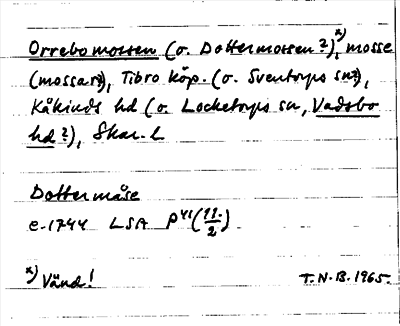 Orrebomossen (o. Dottermossen ?),ˣ⁾ mosse
(mossar?), Tibro köp. (o. Sventorps sn?),
Kåkinds hd (o. Locketorps sn, Vadsbo
hd ?), Skar. l.
Dottermåse
e. 1744 LSA P⁴¹(11./2)
x) Vänd!
T.N.B. 1965.